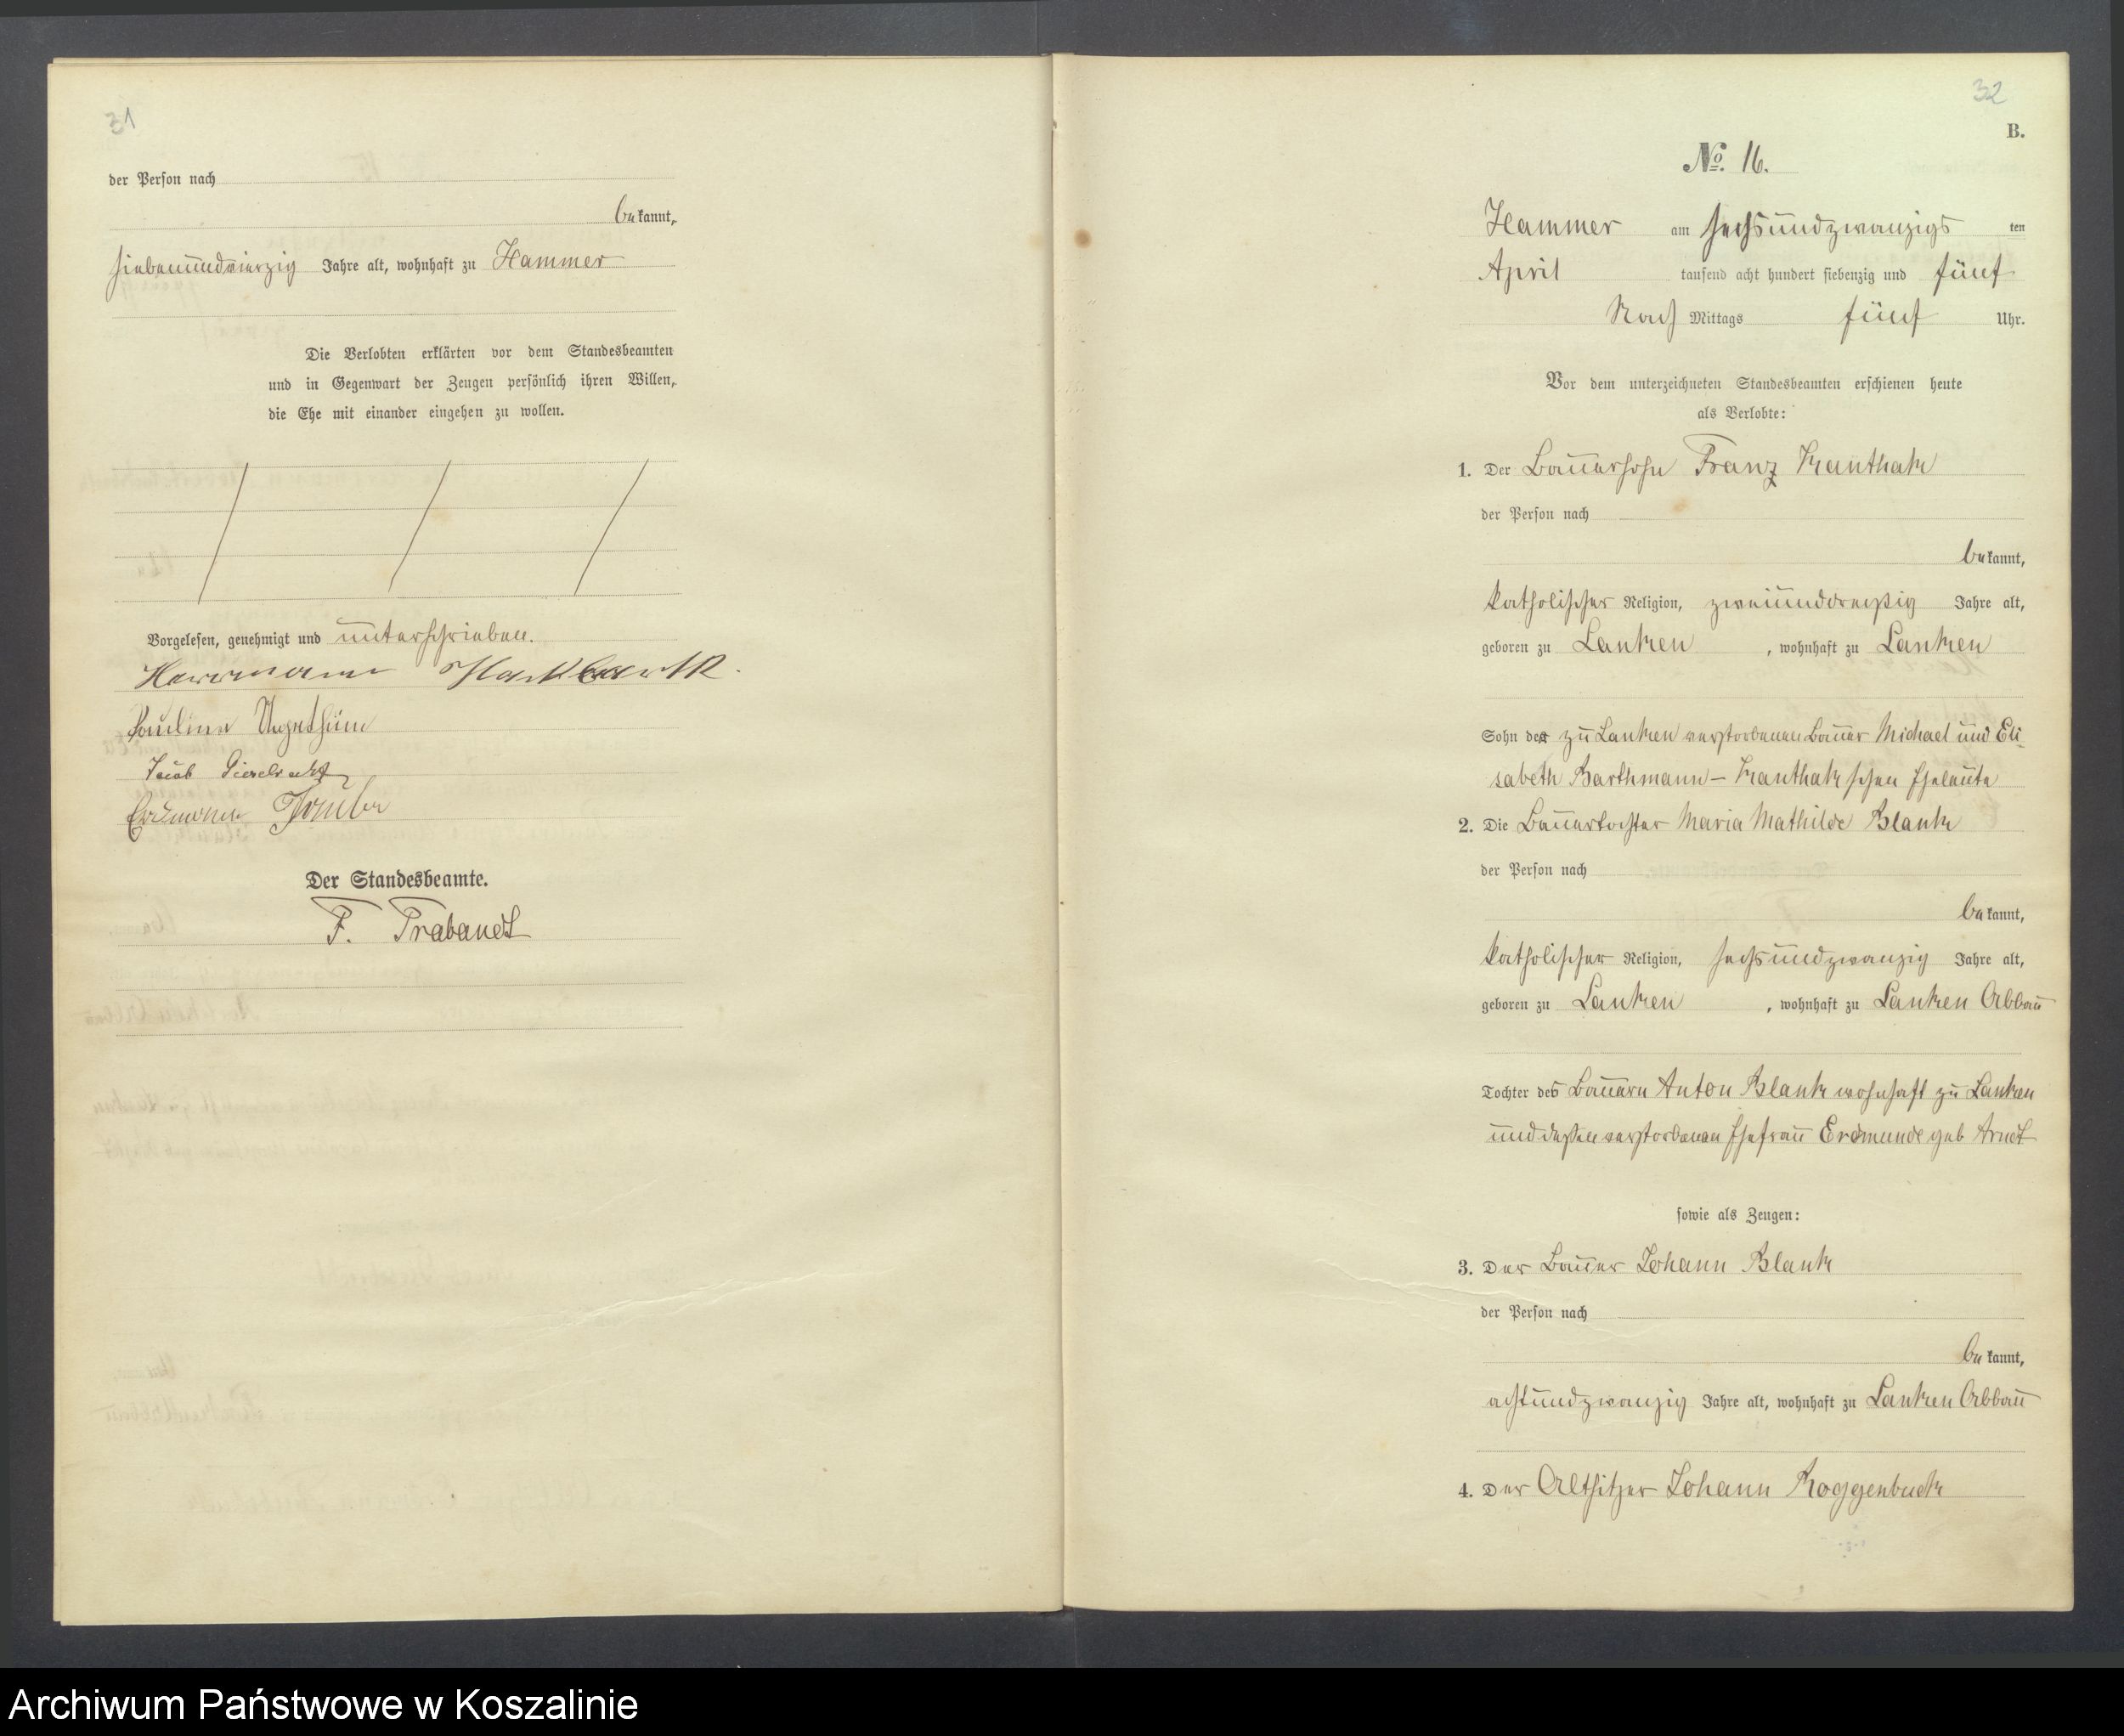 31
der Person nach
bekannt,
siebenundvierzig Jahre alt, wohnhaft zu Hammer
Die Verlobten erklärten vor dem Standesbeamten
und in Gegenwart der Zeugen persönlich ihren Willen,
die Ehe mit einander eingehen zu wollen.
Vorgelesen, genehmigt und unterschrieben.
Herrmann
Pauline
Jacob
Erdmann
Der Standesbeamte.
F. Trabandt
32
B.
No. 16.
Hammer am sechsundzwanzigs ten
April tausend acht hundert siebenzig und fünf
Nach Mittags fünf Uhr.
Vor dem unterzeichneten Standesbeamten erschienen heute
als Verlobte:
1. Der Bauersohn Franz Kanthak
der Person nach
bekannt,
katholischer Religion, zweiunddreißig Jahre alt,
geboren zu Lanken, wohnhaft zu Lanken
Sohn der zu Lanken verstorbenen Bauer Michael und Eli-
sabeth Barthmann - Kanthak schen Eheleute
2. Die Bauertochter Maria Mathilde Blank
der Person nach
bekannt,
katholischer Religion, sechsundzwanzig Jahre alt,
geboren zu Lanken, wohnhaft zu Lanken Abbau
Tochter des Bauern Anton Blank wohnhaft zu Lanken
und dessen verstorbenen Ehefrau Erdmunde geb Arndt
sowie als Zeugen:
3. Der Bauer Johann Blank
der Person nach
bekannt,
achtundzwanzig Jahre alt, wohnhaft zu Lanken Abbau
4. Der Altsitzer Johann Roggenbuck
Archiwum Państwowe w Koszalinie